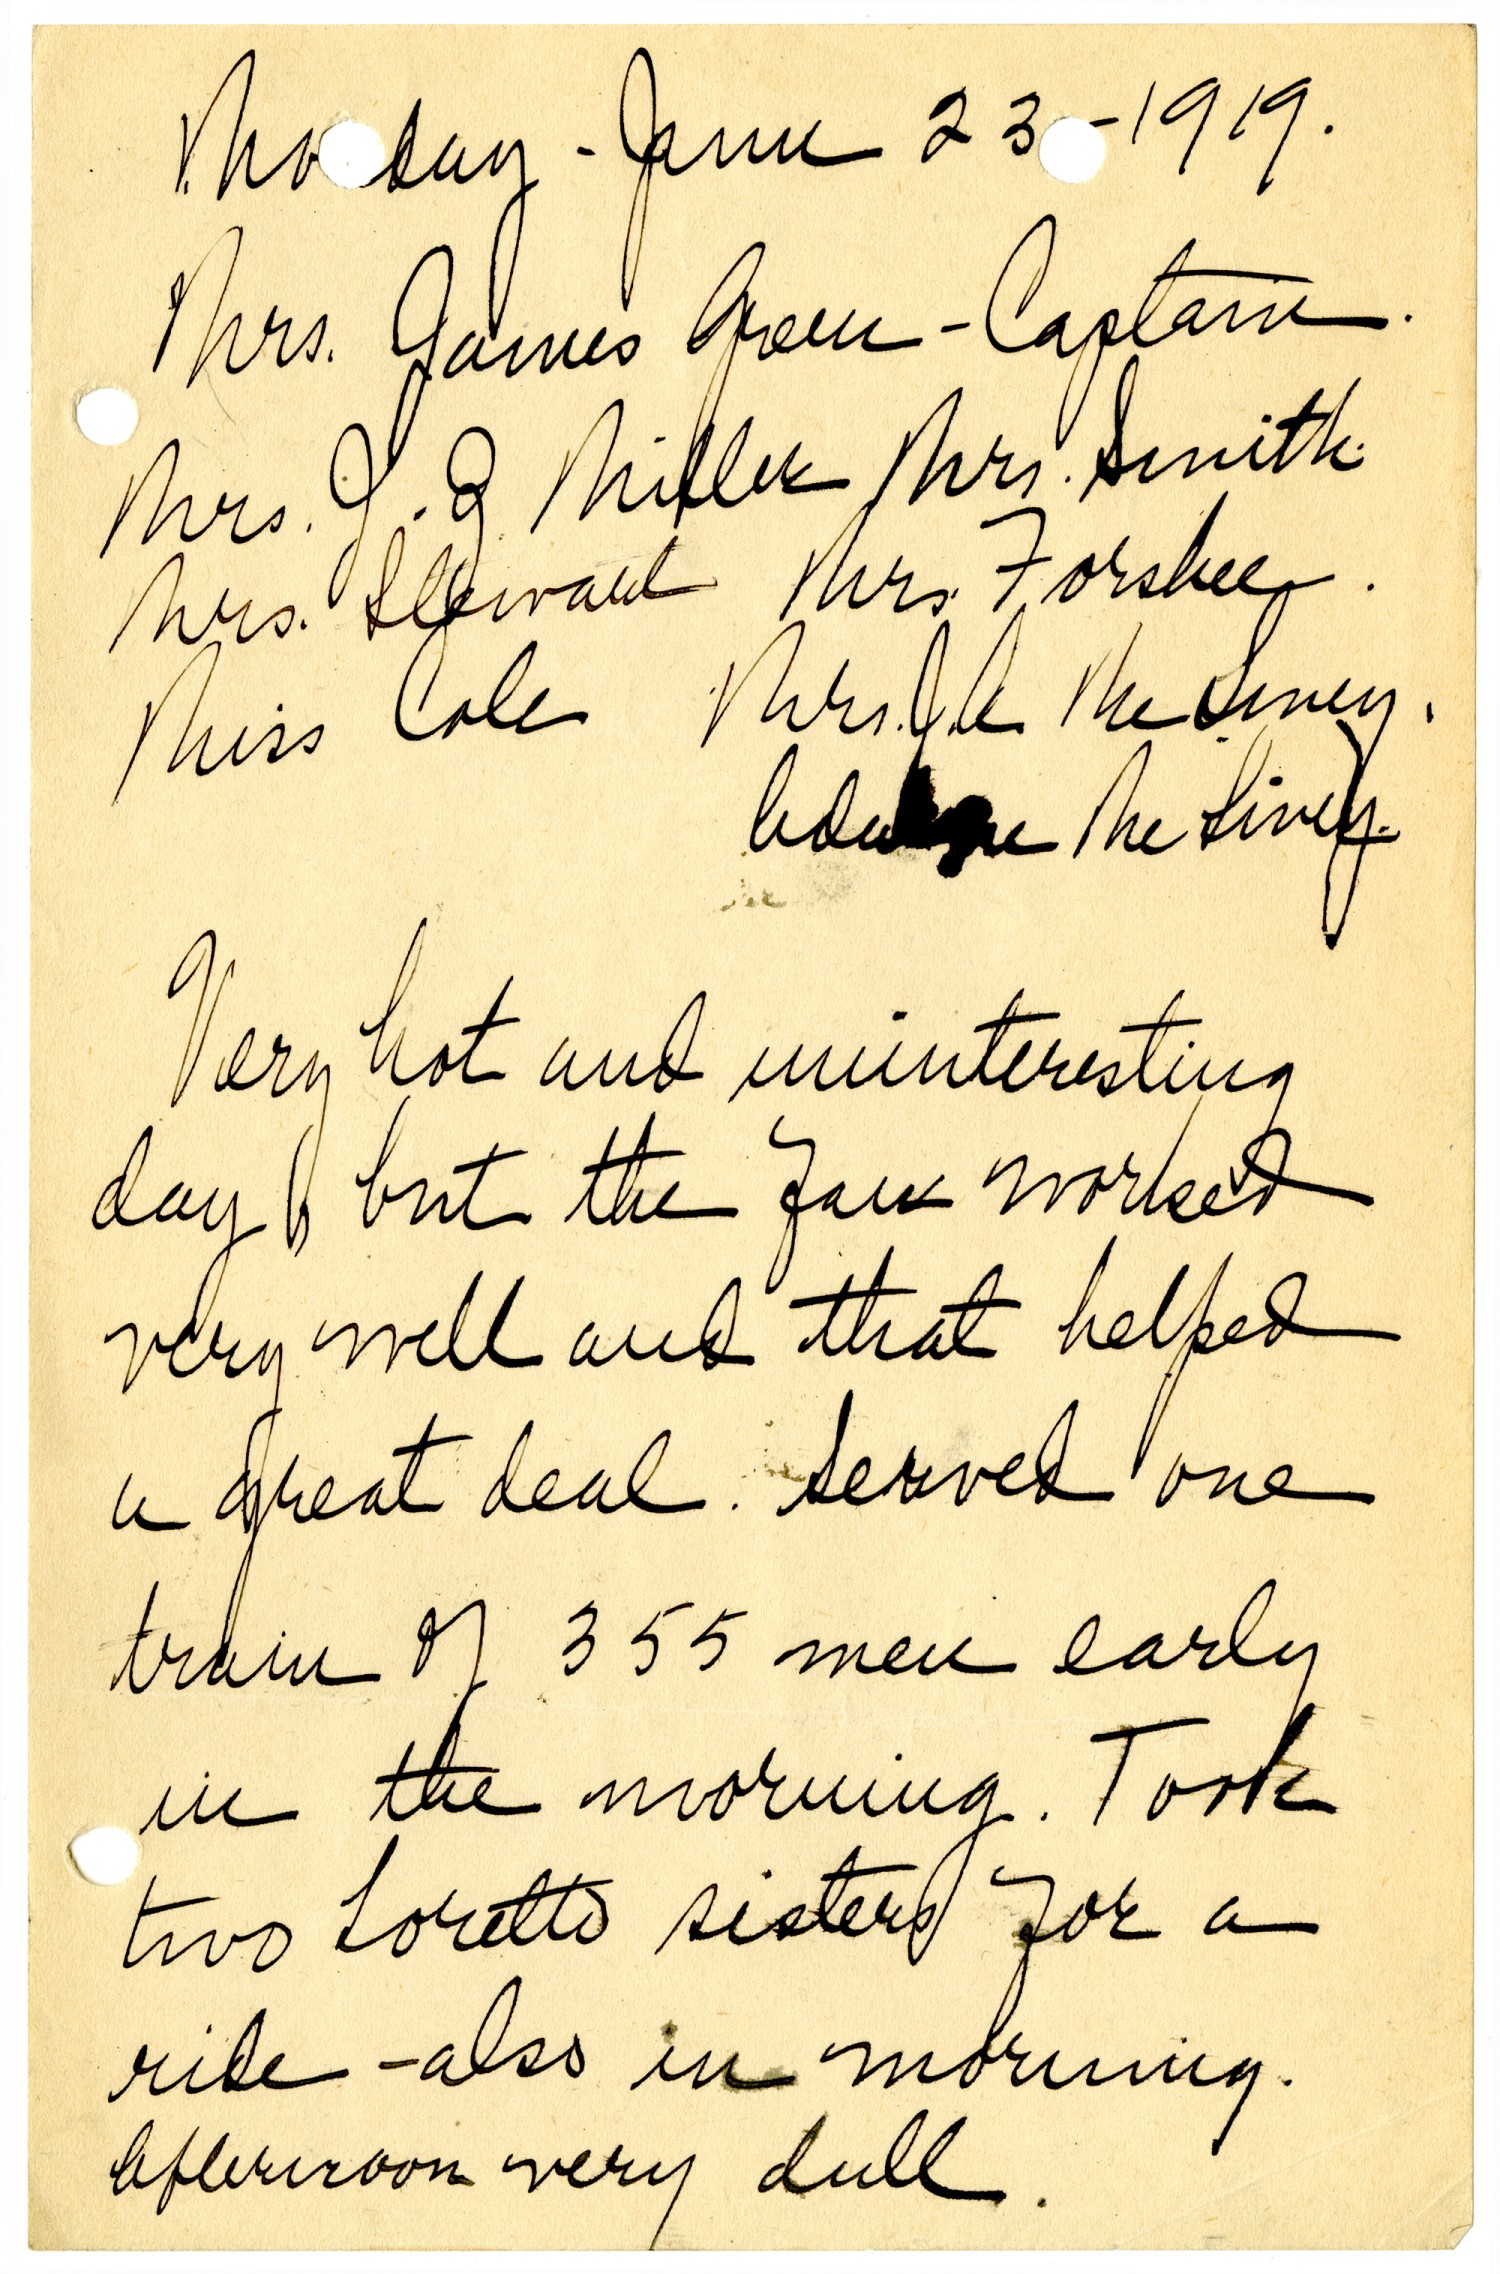 Monday - June 23 - 1919.
Mrs. James Green - Captain.
Mrs. J. Q. Miller Mrs. Smith
Mrs. Steward Mrs. Forsbee.
Miss Cole Mrs. J. C. McSivey.
McSivey.
Very hot and uninteresting
day, but the fan worked
very well and that helped
a great deal. Served one
train of 355 men early
in the morning. Took
two Loretto sisters for a
ride - also in morning.
Afternoon very dull.